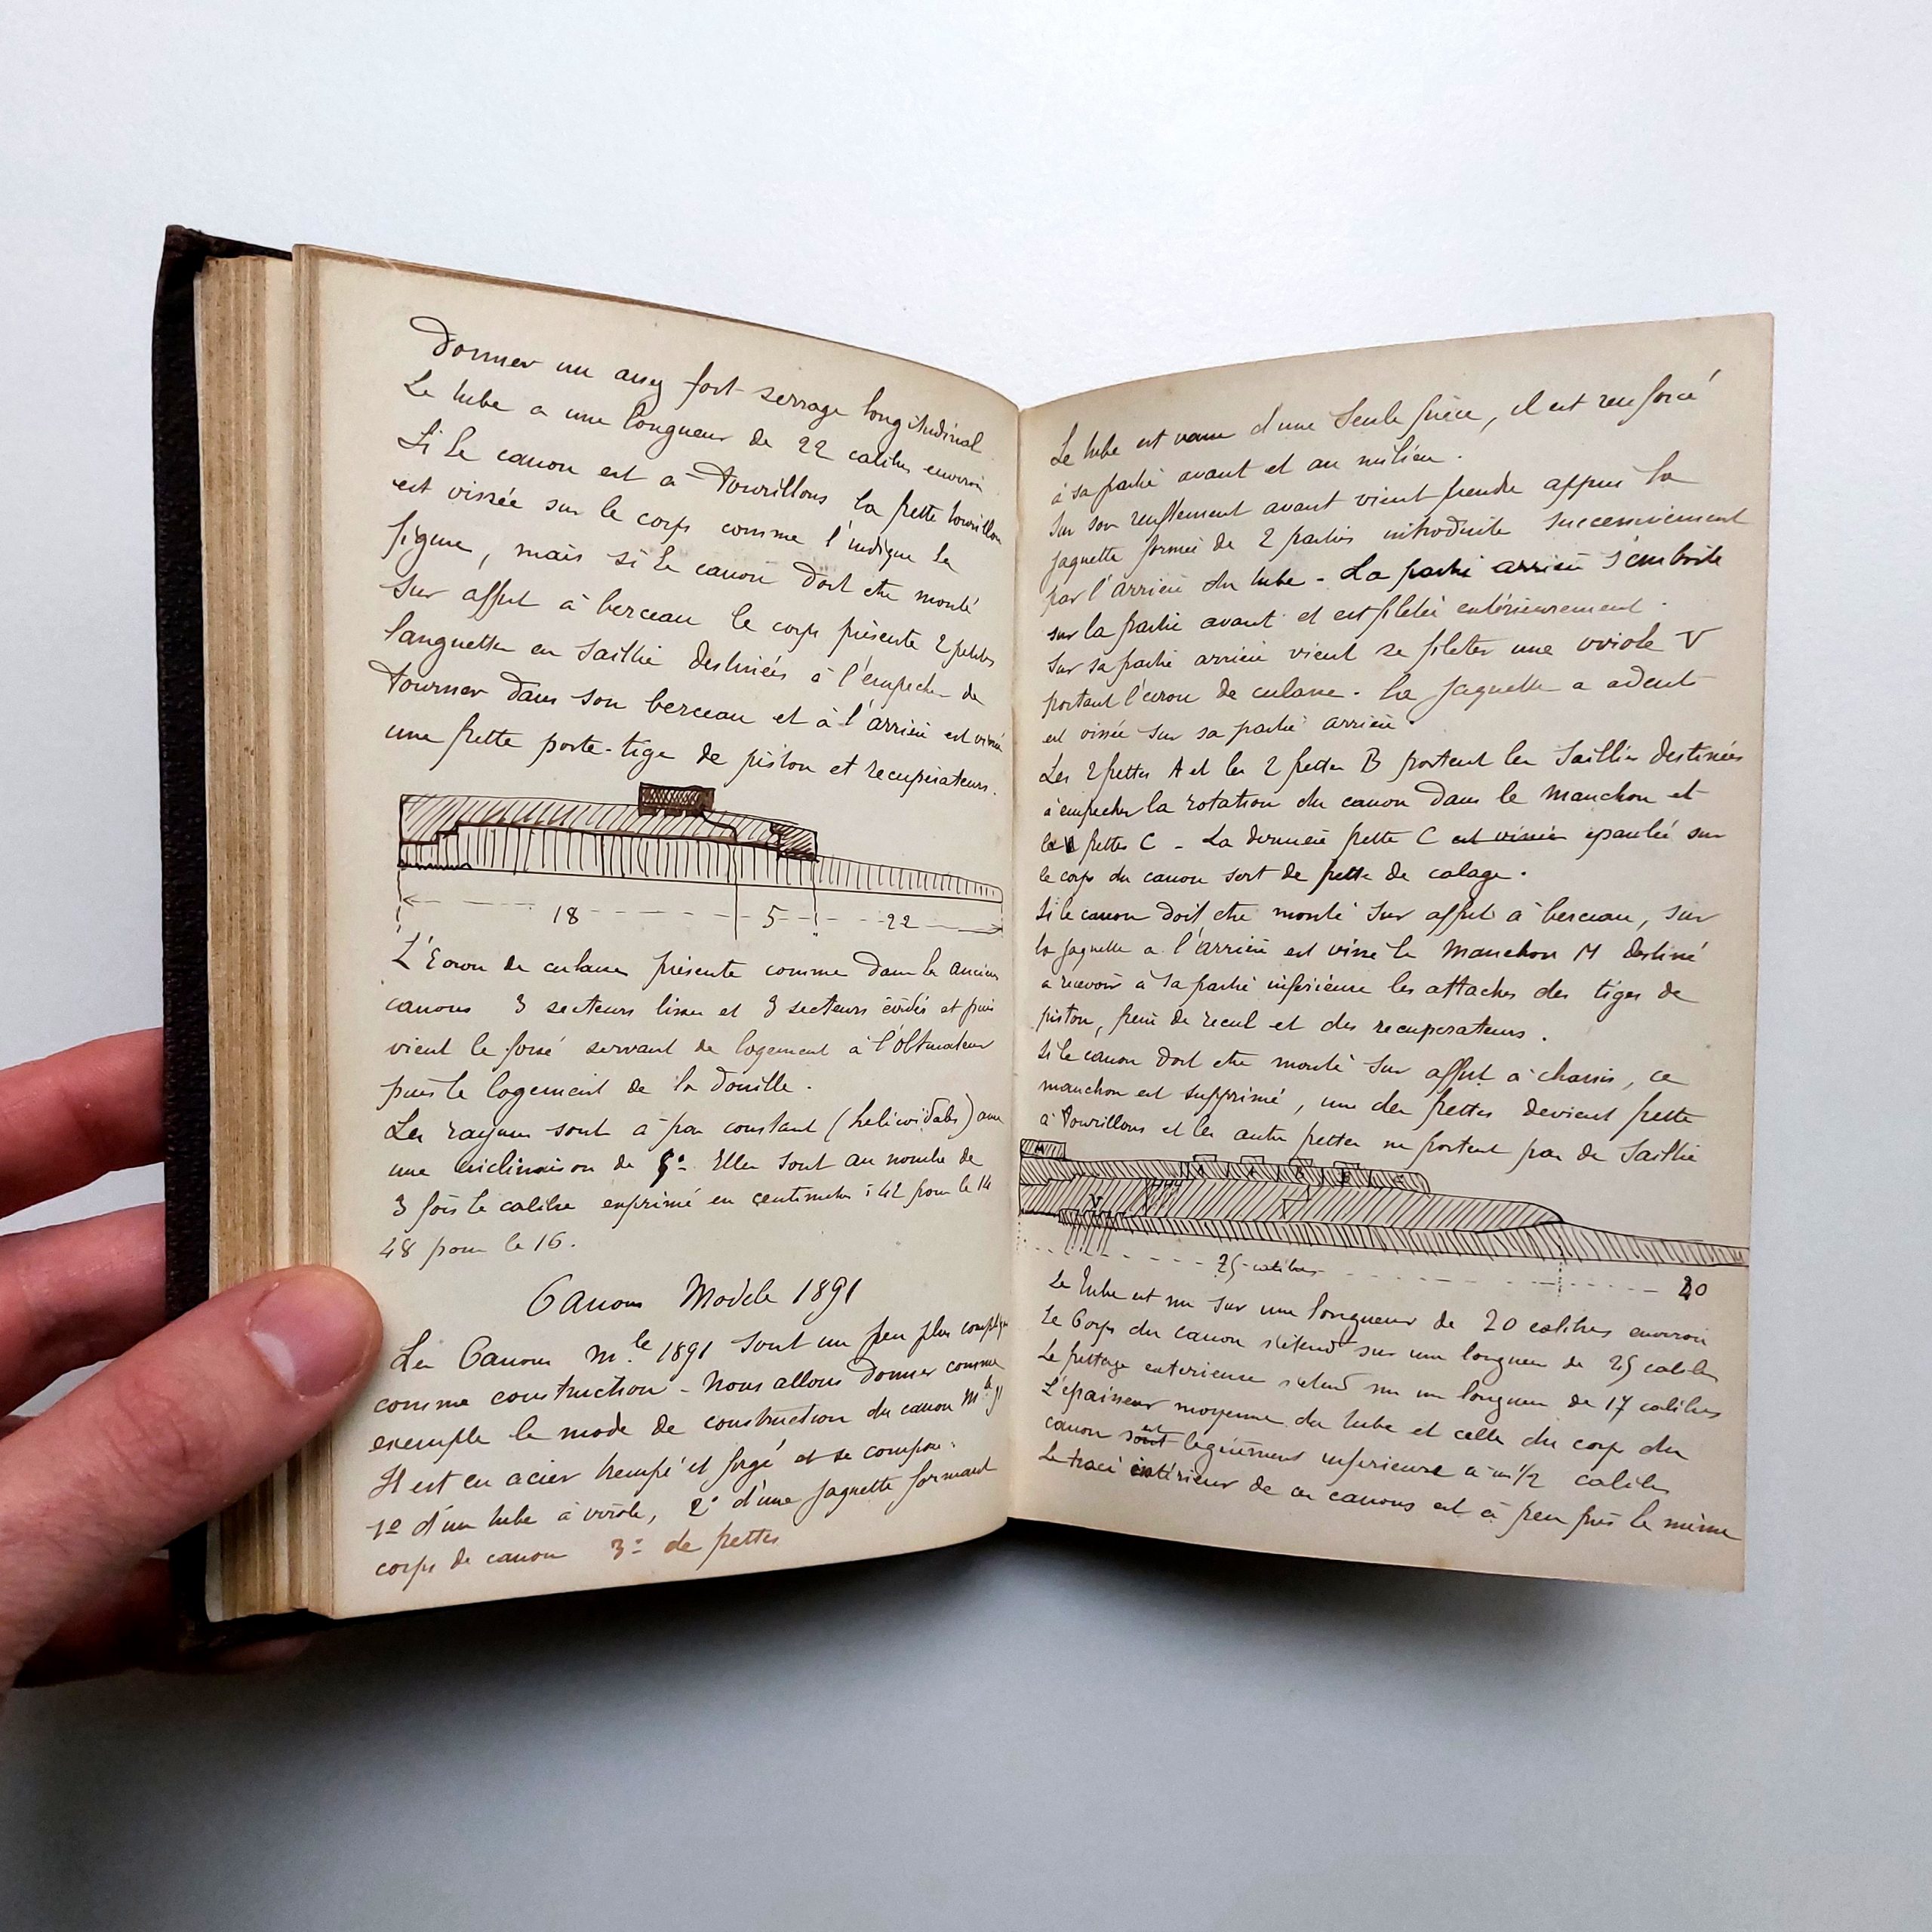 Donner un assez fort serrage longitudinal
Le tube a une longueur de 22 calibres environ
Si le canon est à Tourillons la frette tourillon
est vissée sur le corps comme l'indique la
figure, mais si le canon doit etre monté
sur affut à berceau le corps présente 2 petites
languettes en saillie destinées à l'empecher de
Tourner dans son berceau et à l'arrière est vissée
une frette porte-tige de piston et recupérateurs.
18 5 22
L'Ecrou de culasse présente comme dans les anciens
canons 3 secteurs lisses et 3 secteurs évidés et puis
vient le fossé servant de logement à l'obturateur
puis le logement de la douille.
Les rayures sont à pas constant (helicoidales) avec
une inclinaison de Elles sont au nombre de
3 fois le calibre exprimé en centimetres : 42 pour le 14
48 pour le 16.
Canons Modele 1891
Les Canons Mle 1891 sont un peu plus
comme construction - Nous allons donner comme
exemple le mode de construction du canon Mle 91
Il est en acier trempé et forgé et se compose:
1º d'un tube à virole, 2º d'une jaquette formant
corps de canon 3º de frettes
Le tube est venu d'une seule pièce, il est renforcé
à sa partie avant et au milieu.
Sur son renflement avant vient prendre appui la
jaquette formée de 2 parties introduite successivement
par l'arrière du tube - La partie arrière s'emboite
sur la partie avant et est filetée extérieurement.
Sur sa partie arrière vient se fileter une virole V
portant l'écrou de culasse. La jaquette a adents
est vissée sur sa partie arrière.
Les 2 frettes A et les 2 frettes B portent les saillies destinées
à empecher la rotation du canon dans le manchon et
les frettes C - La dernière frette C est vissée épaulée sur
le corps du canon sert de frette de calage.
Si le canon doit etre monté sur affut à berceau, sur
la jaquette à l'arrière est vissé le manchon M destiné
a recevoir à sa partie inférieure les attaches des tiges de
piston, frein de recul et des recuperateurs.
Si le canon doit etre monté sur affut à chassis, ce
manchon est supprimé, une des frettes devient frette
à tourillons et les autres frettes ne portent pas de saillie
M
V
25 calibres 20
Le tube est nu sur une longueur de 20 calibres environ
Le Corps du canon s'étend sur une longueur de 25 calibres
Le frettage exterieure s'étend sur une longueur de 17 calibres
L'épaisseur moyenne du tube et celle du corps du
canon sont est légèrement inferieure à un 1/2 calibre
Le tracé intérieur de ces canons est à peu près le même